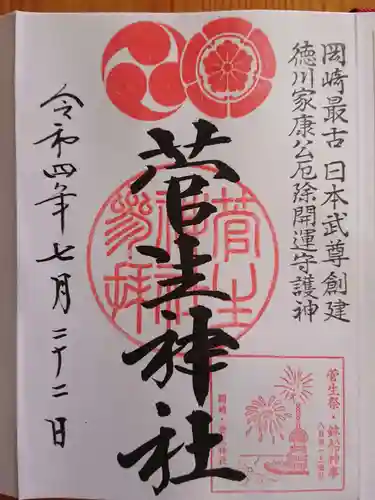 岡崎最古 日本武尊創建
徳川家康公厄除開運守護神
菅生神社
令和四年七月二十二日
菅生神社
参拝
菅生祭・鉾船神事